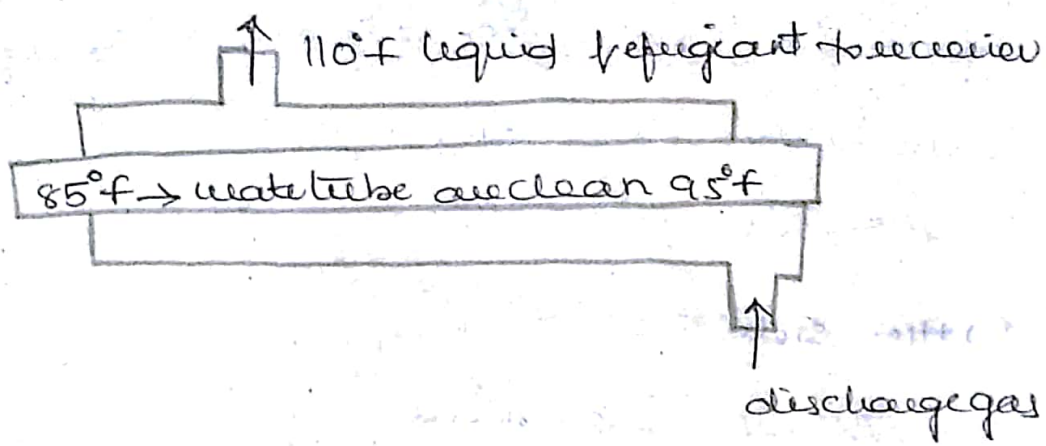 110°f liquid refugeant to receiver
85°f → watetube are clean 95°f
dischargegas